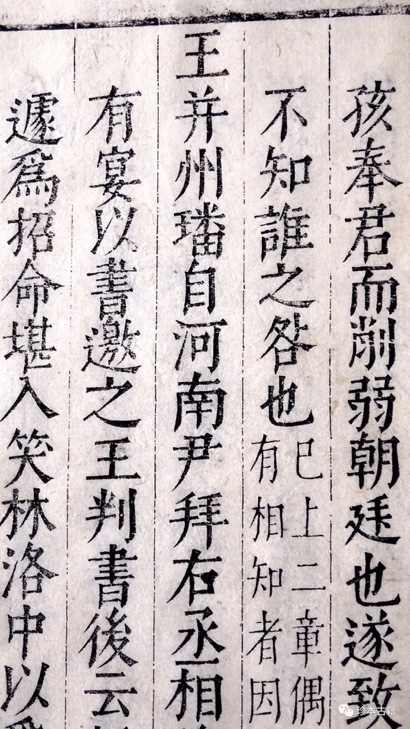 孩奉君而削弱朝廷也遂致
不知誰之咎也巳上二章偶
有相知者因
王并州璠自河南尹拜右丞相
有宴以書邀之王判書後云
遽爲招命堪入笑林洛中以
珍本古籍